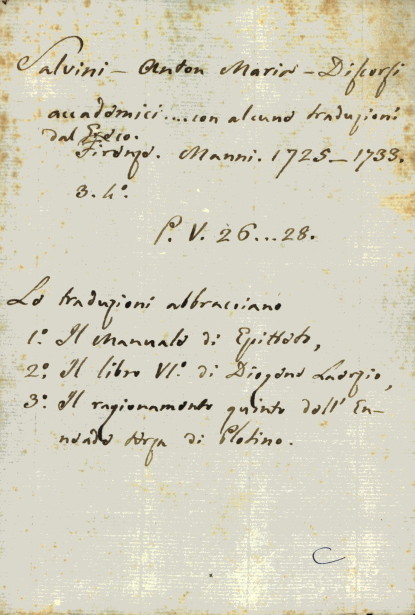 Salvini – Anton Maria – Discorsi
accademici .... con alcune traduzioni
dal Greco.
Firenze. Manni. 1725 – 1733.
3. 4.°
P. V. 26 ... 28.
Le traduzioni abbracciano
1.° Il Manuale di Epitteto,
2.° Il libro VI.° di Diogene Laerzio,
3.° Il ragionamento quinto dell' En-
neade terza di Plotino.
C